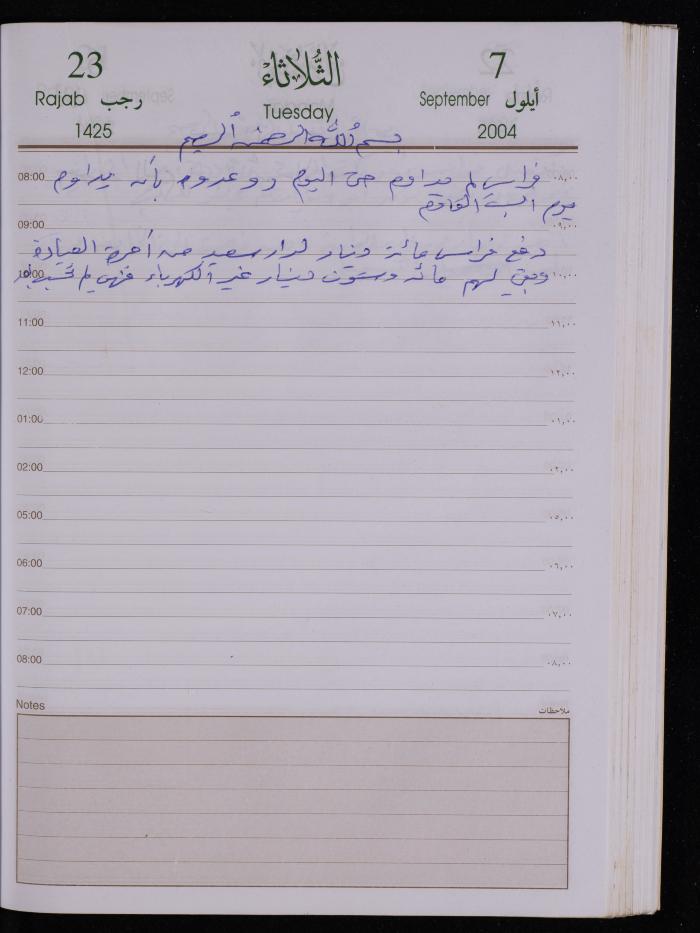 23 الثلاثاء 7
Rajab رجب Tuesday September أيلول
1425 2004
بسم الله الرحمن الرحيم
08:00 فراس لم يداوم حتى اليوم ووعدوه بأنه يداوم ٠٨,٠٠
يوم السبت القادم
09:00 ٠٩,٠٠
دفع فراس مائة دينار لدار سعيد من أجرة العيادة
10:00 وبقي لهم مائة وستون دينار غير الكهرباء فهي لم تحسب بعد ١٠,٠٠
11:00 ١١,٠٠
12:00 ١٢,٠٠
01:00 ٠١,٠٠
02:00 ٠٢,٠٠
05:00 ٠٥,٠٠
06:00 ٠٦,٠٠
07:00 ٠٧,٠٠
08:00 ٠٨,٠٠
Notes ملاحظات